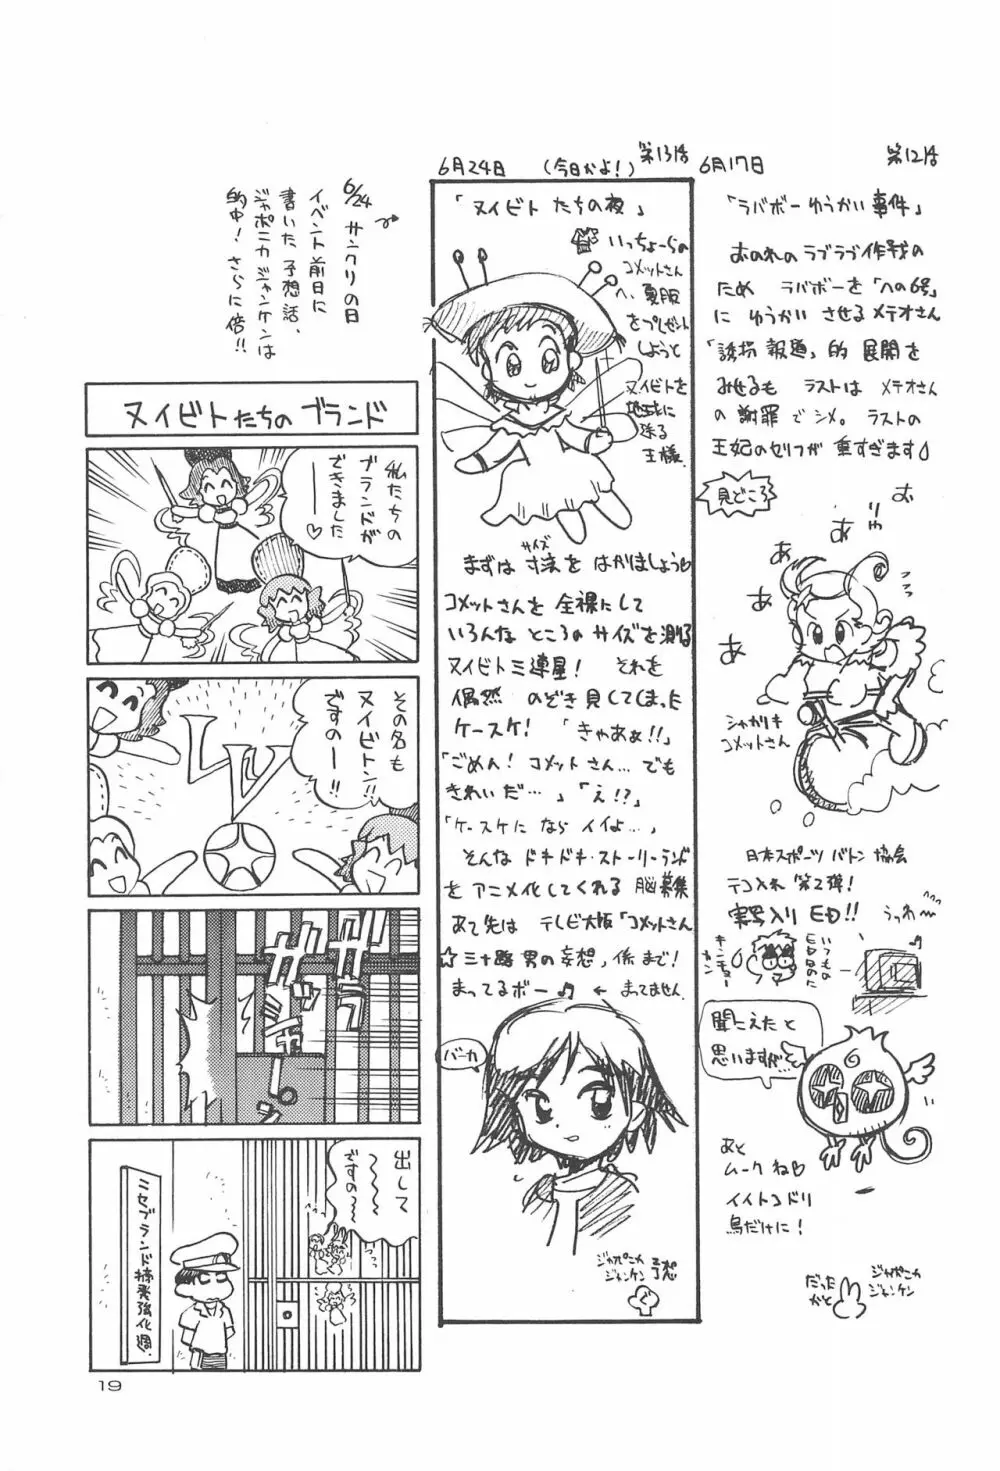 第12話
6月17日
「ラバボーゆうかい事件」
おのれのラブラブ作戦の
ため ラバボーを「への6号」
に ゆうかい させるメテオさん
「誘拐報道」的 展開を
みせるも ラストは メテオさん
の 謝罪で シメ。 ラストの
王妃のセリフが 重すぎます
見どころ
おりゃ
あ
あ
あ
シャカリキ
コメットさん
日本スポーツバトン協会
テコ入れ 第2弾!
実写入りED!!
うっわ〜
いつもの
EDなのに
聞こえたと
思いますが…
あと
ムークね♡
イイトコドリ
鳥だけに!
ジャポニカ
ジャンケン
だった
かと
第13話
6月24日 (今日かよ!)
「ヌイビトたちの夜」
いっちょーらの
コメットさん
へ、夏服
をプレゼント
しようと
ヌイビトを
地球に
送る
王様
まずは 寸法を はかりましょう♡
サイズ
コメットさんを 全裸にして
いろんな ところの サイズを 測る
ヌイビト三連星! それを
偶然 のぞき見してしまった
ケースケ! 「きゃあぁ!!」
「ごめん! コメットさん… でも
きれいだ…」「え!?」
「ケースケに なら イイよ…」
そんな ドキドキ・ストーリーランド
を アニメ化してくれる 脳募集
あて先は テレビ大阪「コメットさん
☆三十路男の妄想」係まで!
まってるボー♪ ← まってません
バーカ
ジャポニカ
ジャンケン
予想
6/24 サンクリの日
イベント前日に
書いた、予想話、
ジャポニカジャンケンは
的中! さらに倍!!
ヌイビトたちのブランド
私たちの
ブランドが
できました
ー♡
その名も
ヌイビトン!!
ですのー!!
LV
ガラガラ
ガシャーン
出して
〜〜
ですの〜
ニセブランド摘発強化週
19